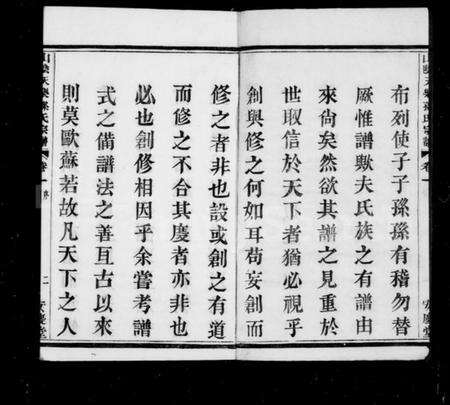 布列使子子孫孫有稽勿替
厥惟譜歟夫氏族之有譜由
來尙矣然欲其譜之見重於
世取信於天下者猶必視乎
創與修之何如耳苟妄創而
修之者非也設或創之有道
而修之不合其慶者亦非也
必也創修相因乎余嘗考譜
式之備譜法之善亙古以來
則莫歐蘇若故凡天下之人